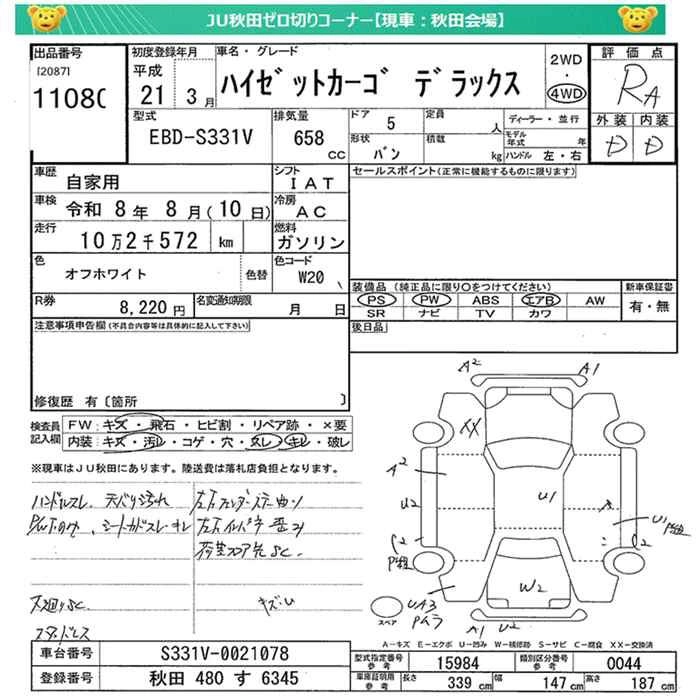 JU秋田ゼロ切りコーナー【現車：秋田会場】
出品番号
[2087]
1108C
初度登録年月
平成
21 3月
車名・グレード
ハイゼットカーゴ デラックス
2WD
・
4WD
評価点
RA
外装 内装
D D
型式
EBD-S331V
排気量
658
CC
ドア
5
定員
人
形状
バン
積載
kg
ディーラー・並行
モデル年式 年
ハンドル 左・右
車歴
自家用
シフト
IAT
セールスポイント(正常に機能するものに限ります)
車検
令和 8年 8月(10日)
冷房
AC
走行
10万2千572 km
燃料
ガソリン
色
オフホワイト
色替
色コード
W20
装備品 (純正品に限り○をつけてください)
PS PW ABS エアB AW
SR ナビ TV カワ
新車保証書
有・無
R券
8,220円
名変通知期限
月 日
後日品
注意事項申告欄(不具合内容等は具体的に記入して下さい)
修復歴 有〔箇所 〕
検査員
記入欄
FW：キズ・飛石・ヒビ割・リペア跡・×要
内装：キズ・汚レ・コゲ・穴・スレ・キレ・破レ
※現車はJU秋田にあります。陸送費は落札店負担となります。
ハンドルスレ
キズU
下廻りSC
スタッドレス
A2 A1
XX
A2
U2
U1
U1
W2
UA3
A1 U2
スペア
A－キズ E－エクボ U－凹み W－補修跡 S－サビ C－腐食 XX－交換済
車台番号
S331V-0021078
登録番号
秋田 480 す 6345
型式指定番号
参考
15984
類別区分番号
参考
0044
車庫証明用
参考
長さ
339 cm
幅
147 cm
高さ
187 cm